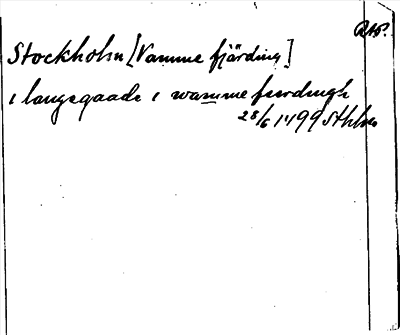 RAp.
Stockholm [Vamme fjärding]
i langegaade i wamme fierdingh
28/6 1499 Sthlm